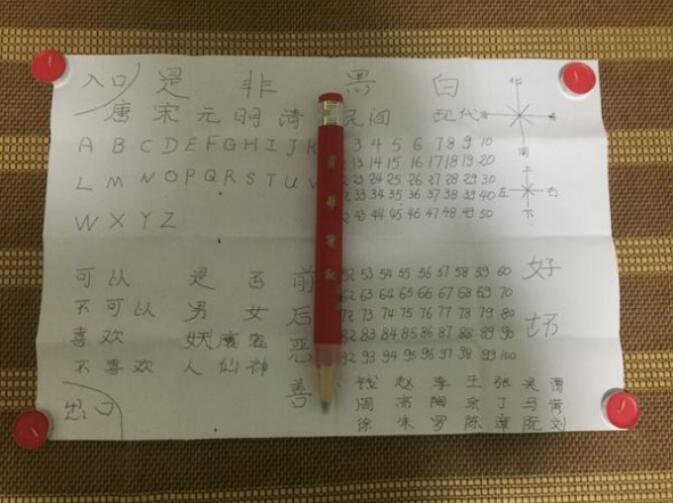 入口 是 非 黑 白 北
唐 宋 元 明 清 民间 现代
南
A B C D E F G H I J K 3 4 5 6 7 8 9 10
13 14 15 16 17 18 19 20
L M N O P Q R S T U V 23 24 25 26 27 28 29 30
33 34 35 36 37 38 39 40
W X Y Z 43 44 45 46 47 48 49 50
上
左 右
下
可以 是 否 前 52 53 54 55 56 57 58 59 60 好
不可以 男 女 后 62 63 64 65 66 67 68 69 70
72 73 74 75 76 77 78 79 80 坏
喜欢 妖 魔 恶 82 83 84 85 86 87 88 89 90
不喜欢 人 仙 神 92 93 94 95 96 97 98 99 100
出口 善 钱 赵 李 王 张 吴
周 高 陶 余 丁 马
徐 朱 罗 陈 章 阮 刘